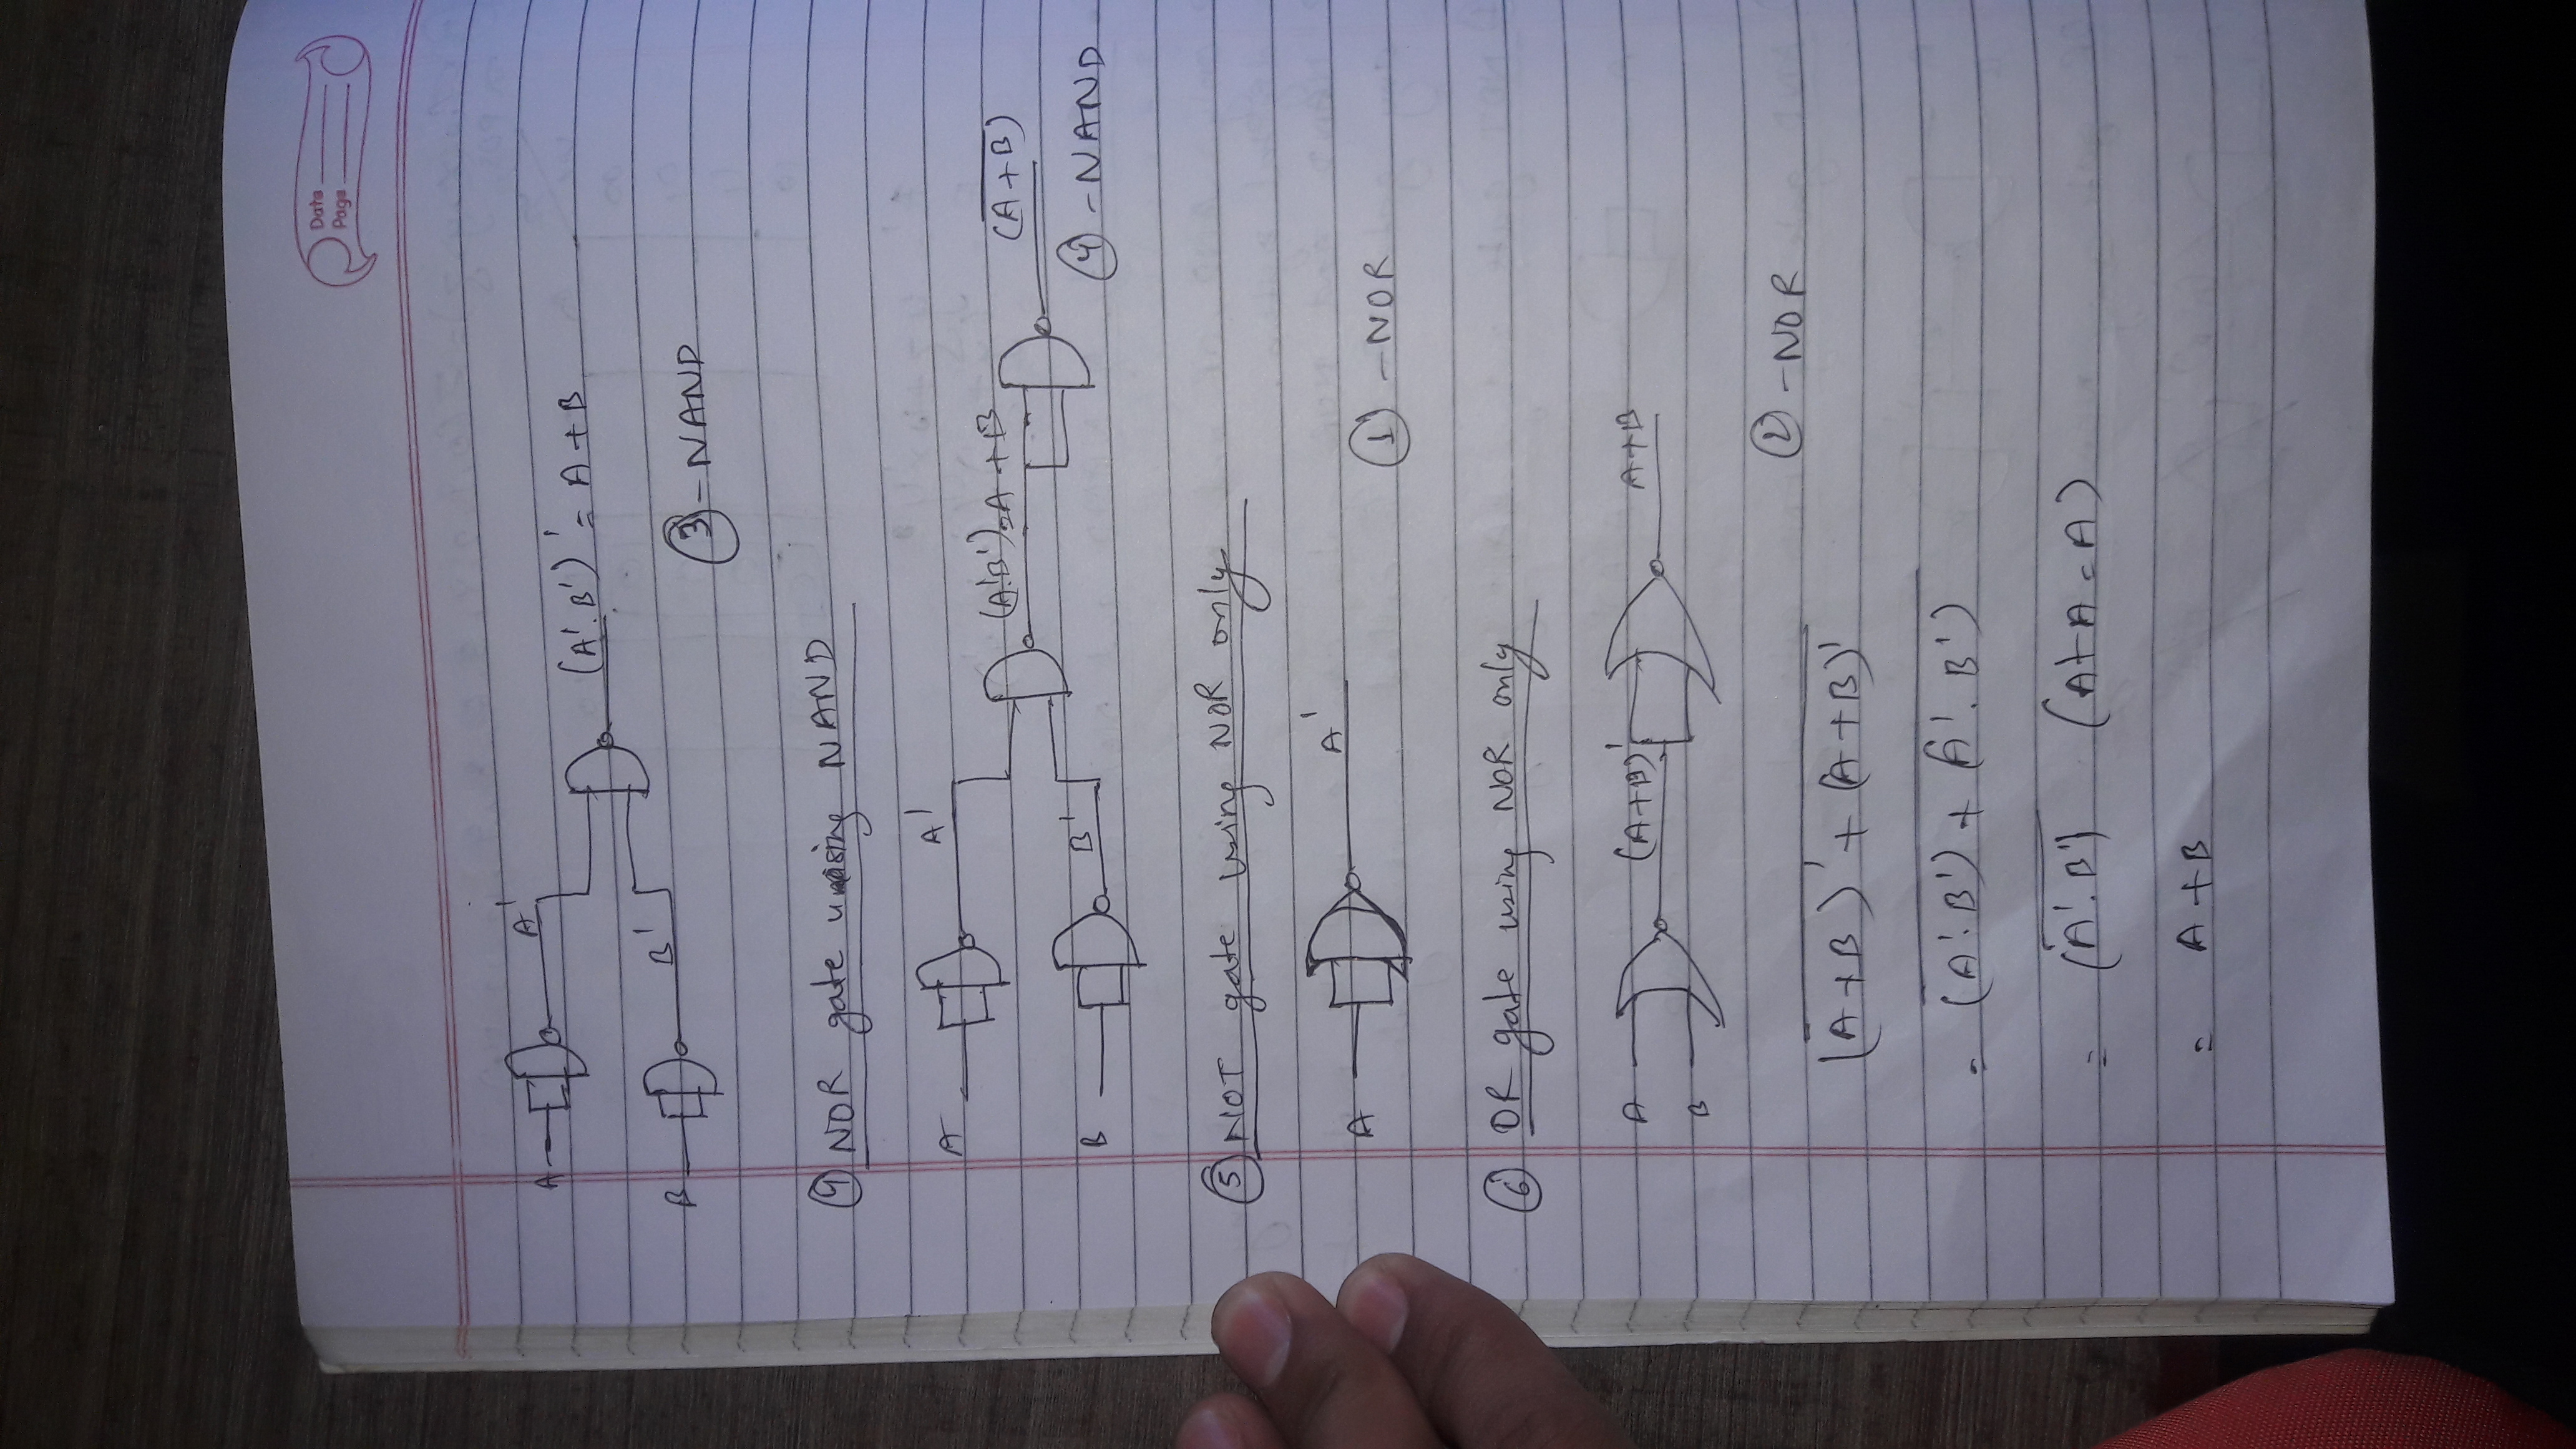 Date
Page
A A'
(A'.B')' = A+B
B B'
③-NAND
④ NOR gate using NAND
A A'
(A'.B')=A+B (A+B)
B B'
④-NAND
⑤ NOT gate using NOR only
A A'
① -NOR
⑥ OR gate using NOR only
A (A+B)' A+B
B
② -NOR
(A+B)' + (A+B)'
= (A'.B') + (A'.B')
= (A'.B') (A+A=A)
= A+B